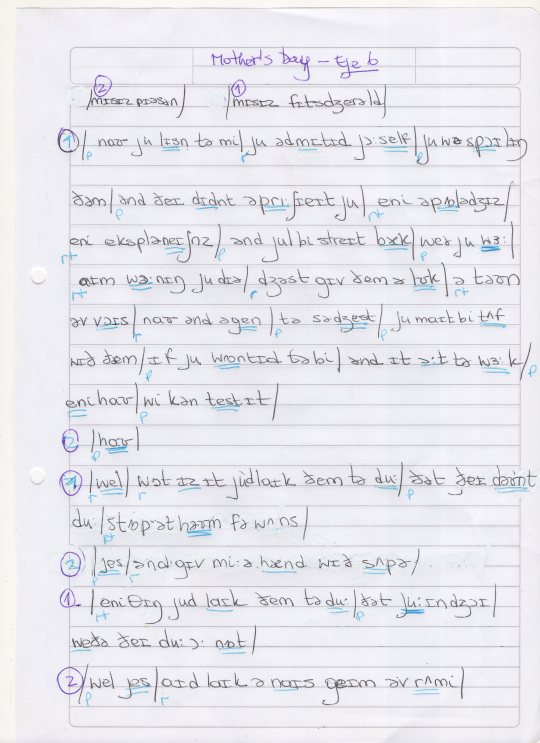 Mother's Day – eje 6
② ①
/mɪsɪz pɪəsən/ /mɪsɪz fɪtsdʒerəld/
① / naʊ ju lɪsn tə mi / ju ədmɪtɪd jɔ:self / ju wə spɔɪlɪŋ
p r r p
ðəm / ənd ðeɪ dɪdnt əpri:ʃɪeɪt ju / eni əpɒlədʒɪz /
p r+
eni ekspləneɪʃnz / ənd jul bi streɪt bæk / weə ju wɜ: /
r+ p p
aɪm wɔ:nɪŋ ju dɪə / dʒəst gɪv ðem ə lʊk / ə təʊn
r+ r r+
əv vɔɪs / naʊ ənd əgen / tə sədʒest / ju maɪt bi tʌf
r p p
wɪð ðem / ɪf ju wɒntɪd tə bi / ənd ɪt ɔ:t tə wɜ:k /
p p
enihaʊ / wi kən test ɪt /
p
② / haʊ /
p
① / wel / wɒt ɪz ɪt jud laɪk ðem tə du: / ðət ðeɪ dəʊnt
r r p
du: / stɒp ət həʊm fə wʌns /
r+
② / jes / ənd gɪv mi: ə hænd wɪð sʌpə /
p r
1. / eniθɪŋ jud laɪk ðem tə du: / ðət ju: ɪndʒɔɪ /
r+ p
weðə ðeɪ du: ɔ: nɒt /
② / wel jes / aɪd laɪk ə naɪs geɪm əv rʌmi /
p r